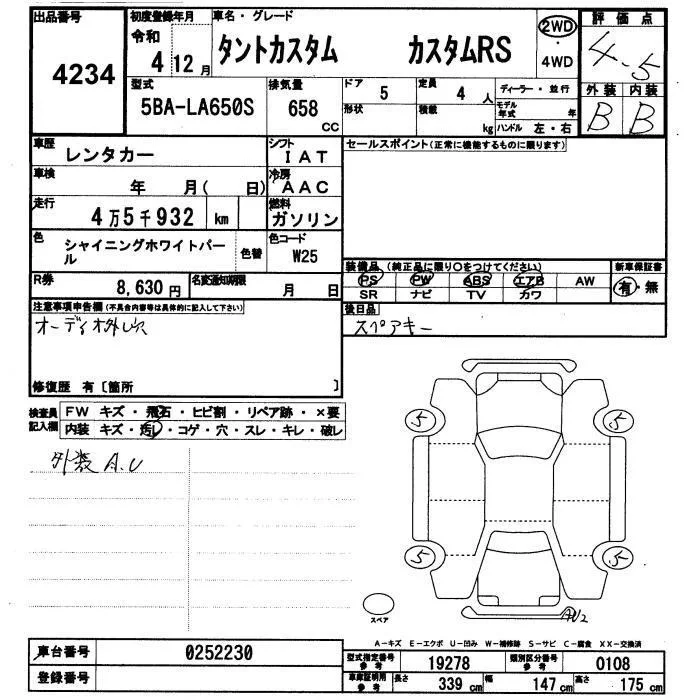 出品番号 4234
初度登録年月 令和 4 12月
車名・グレード タントカスタム カスタムRS
2WD・4WD
評価点 4.5
型式 5BA-LA650S
排気量 658 CC
ドア 5
形状
定員 4 人
積載 kg
ディーラー・並行
モデル年式 年
ハンドル 左・右
外装 内装
B B
車歴 レンタカー
シフト IAT
セールスポイント(正常に機能するものに限ります)
車検 年 月( 日)
冷房 AAC
走行 4万5千932 km
燃料 ガソリン
色 シャイニングホワイトパール
色替
色コード W25
装備品(純正品に限り○をつけてください)
新車保証書
PS PW ABS エアB AW
SR ナビ TV カワ
有・無
R券 8,630円
名変通知期限 月 日
後日品
スペアキー
注意事項申告欄(不具合内容等は具体的に記入して下さい)
オーディオ外レス
修復歴 有〔箇所 〕
検査員記入欄
FW キズ・飛石・ヒビ割・リペア跡・×要
内装 キズ・汚レ・コゲ・穴・スレ・キレ・破レ
外装 A.U
5 5
5 5
スペア
AU2
A-キズ E-エクボ U-凹み W-補修跡 S-サビ C-腐食 XX-交換済
車台番号 0252230
登録番号
型式指定番号参考 19278
類別区分番号参考 0108
車庫証明用参考 長さ 339cm 幅 147cm 高さ 175cm